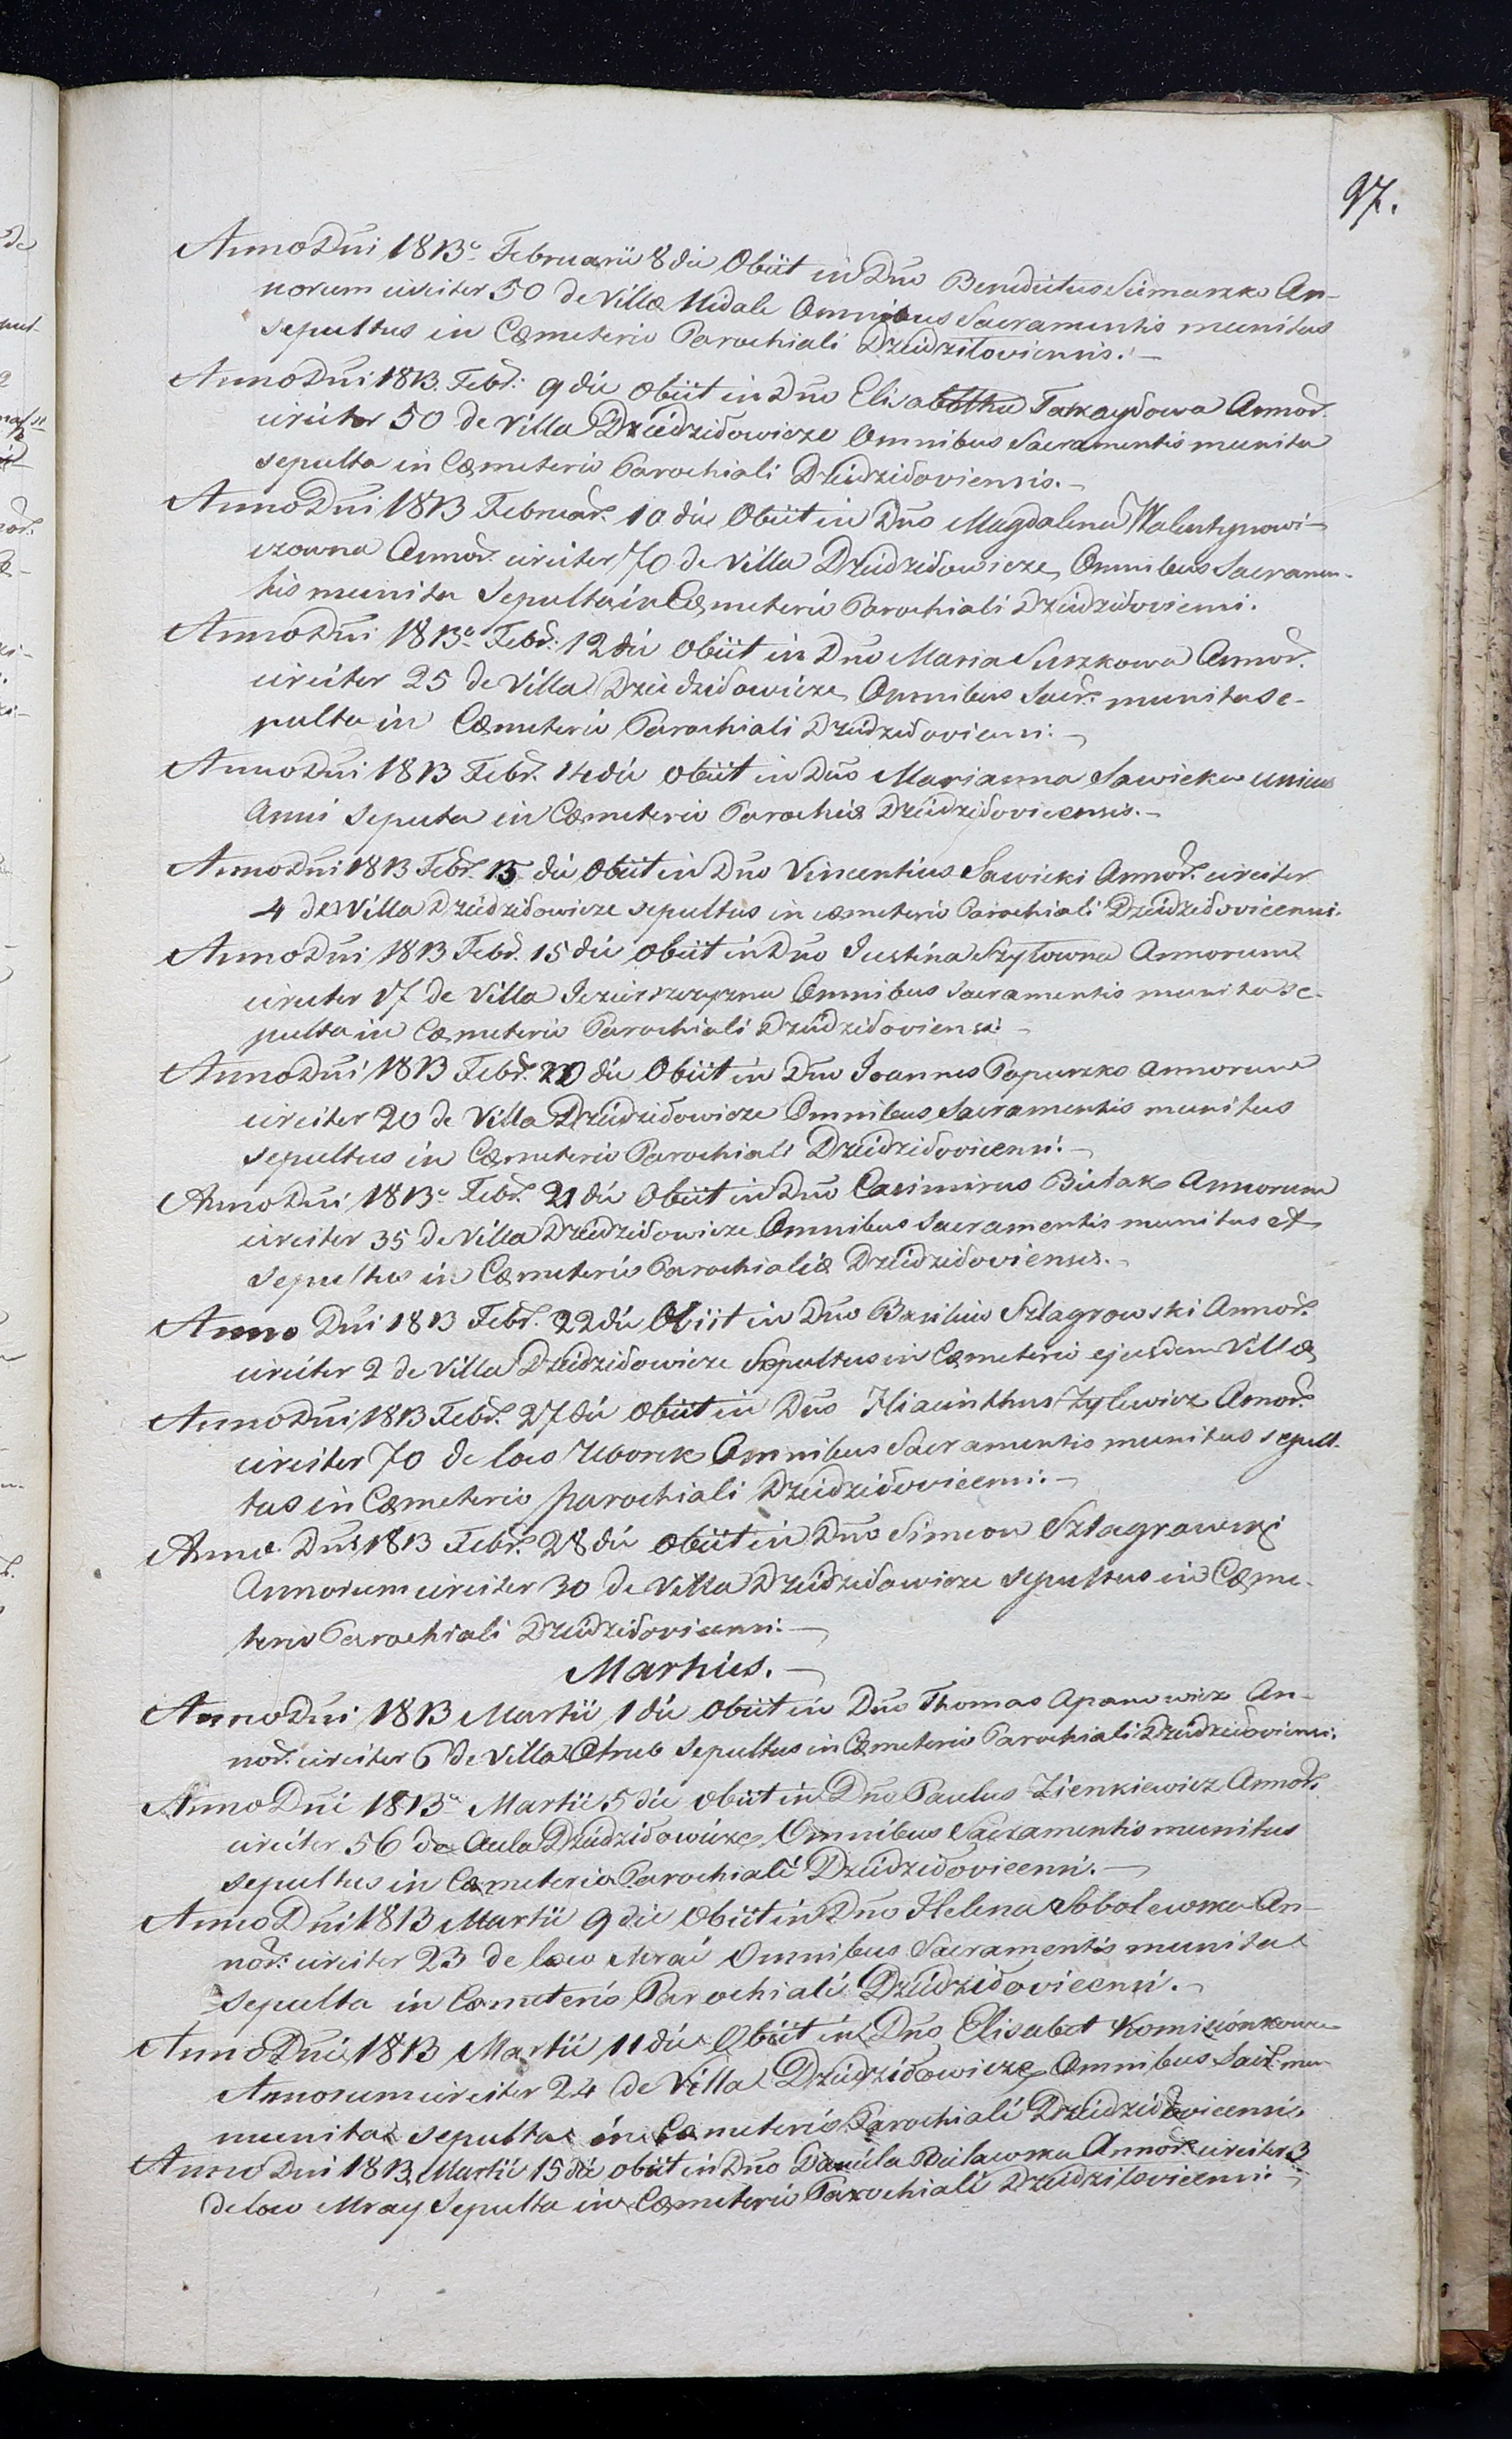 97.
Anno Dni 1813o Februarii 8 die Obiit in Dno Benedictus Siemaszko An-
norum circiter 50 de Villa Midale Omnibus Sacramentis munitus
sepultus in Cæmeterio Parochiali Dziedziloviensis.
Anno Dni 1813. Febr: 9 die Obiit in Dno Elisabetha Takaydowa Annor.
circiter 50 de Villa Dziedzidowicze Omnibus Sacramentis munita
sepulta in Cæmeterio Parochiali Dziedzidoviensis.
Anno Dni 1813 Februar. 10 die Obiit in Dno Magdalena Walentynowi-
czowna Annor. circiter 70 de Villa Dziedzidowicze Omnibus Sacramen-
tis munita Sepulta in Cæmeterio Parochiali Dziedzidoviensi.
Anno Dni 1813o Febr: 12 die Obiit in Dno Maria Suszkowa Annor.
circiter 25 de Villa Dziedzidowicze Omnibus Sacr. munita se-
pulta in Cæmeterio Parochiali Dziedzidoviensi.
Anno Dni 1813 Febr. 14 die Obiit in Dno Marianna Sawicka unius
Anni Seputa in Cæmeterio Parochiæ Dziedzidovicensis.
Anno Dni 1813 Febr. 15 die Obiit in Dno Vincentius Sawicki Annor. circiter
4 de Villa Dziedzidowicze sepultus in cæmeterio Parochiali Dziedzidovicensi.
Anno Dni 1813 Febr. 15 die Obiit in Dno Justina Szyłowna Annorum
circiter 17 de Villa Omnibus Sacramentis munita se-
pulta in Cæmeterio Parochiali Dziedzidoviensi
Anno Dni 1813 Febr. 20 die Obiit in Dno Joannes Papuszko Annorum
circiter 20 de Villa Dziedzidowicze Omnibus Sacramentis munitus
sepultus in Cæmeterio Parochiali Dziedzidovicensi.
Anno Dni 1813o Febr. 21 die Obiit in Dno Casimirus Bułak Annorum
circiter 35 de Villa Dziedzidowicze Omnibus Sacramentis munitus et
Sepultus in Cæmeterio Parochialiæ Dziedzidoviensis.
Anno Dni 1813 Febr. 22 die Obiit in Dno Basilius Szlagrowski Annor.
circiter 2 de Villa Dziedzidowicze Sepultus in Cæmeterio ejusdem Villæ
Anno Dni 1813 Febr. 27 die Obiit in Dno Hiacinthus Zylewicz Annor.
circiter 70 de loco Uborek Omnibus Sacramentis munitus sepul-
tus in Cæmeterio parochiali Dziedzidovicensi.
Anno Dni 1813 Febr. 28 die Obiit in Dno Simeon Szlagrowski
Annorum circiter 30 de Villa Dziedzidowicze sepultus in Cæme-
terio Parochiali Dziedzidovicensi.
Martius.
Anno Dni 1813 Martii 1 die Obiit in Dno Thomas Apanowicz An-
nor. circiter 6 de Villa Otrub Sepultus in Cæmeterio Parochiali Dziedzidoviensi.
Anno Dni 1813o Martii 5 die Obiit in Dno Paulus Zienkiewicz Annor.
circiter 56 de Aula Dziedzidowicze Omnibus Sacramentis munitus
sepultus in Cæmeterio Parochiali Dziedzidovicensi.
Anno Dni 1813 Martii 9 die Obiit in Dno Helena Sobolewska An-
nor: circiter 23 de loco Mrai Omnibus Sacramentis munita
Sepulta in Cæmeterio Parochiali Dziedzidovicensi.
Anno Dni 1813 Martii 11 die Obiit in Dno Elisabet
Annorum circiter 24 de Villa Dziedzidowicze Omnibus Sacr. mu-
munita sepulta in Cæmeterio Parochiali Dziedzidovicensi.
Anno Dni 1813 Martii 15 die obiit in Dno Daniela Bulawska Annor. circiter 3
de loco Mray Sepulta in Cæmeterio Parochiali Dziedzilovicensi.